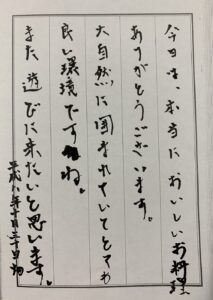 今日は、本当においしいお料理
ありがとうございます。
大自然に囲まれていてとても
良い環境ですね。
また遊びに来たいと思います。
平成八年十月三十日